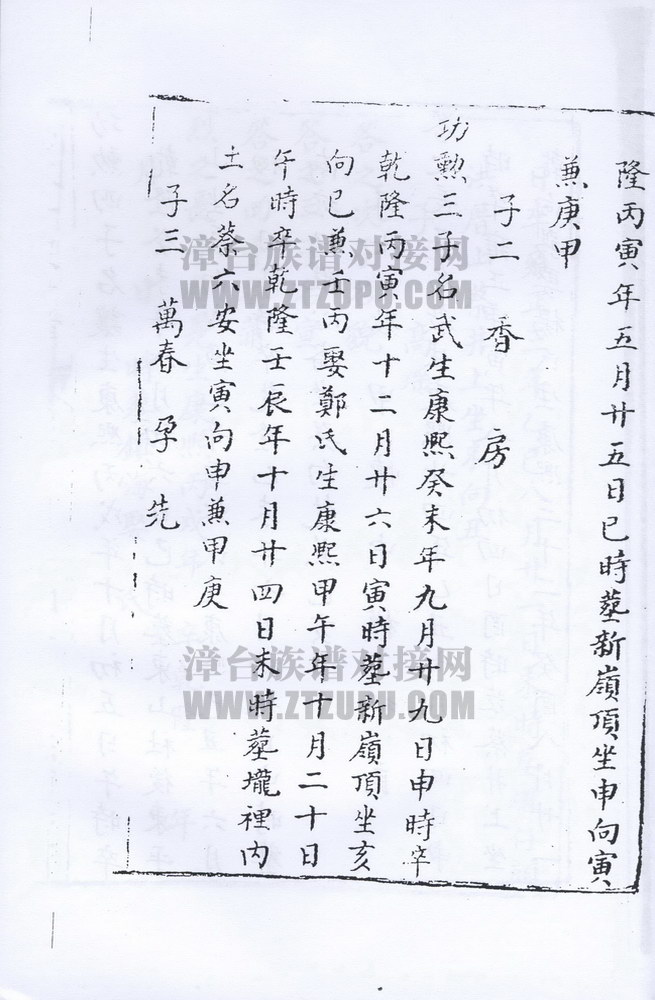 隆丙寅年五月廿五日巳時塟新嶺頂坐申向寅
兼庚甲
子二 香 房
功勲三子名武生康熙癸未年九月廿九日申時卒
乾隆丙寅年十二月廿六日寅時塟新嶺頂坐亥
向巳兼壬丙娶鄭氏生康熙甲午年十月二十日
午時卒乾隆壬辰年十月廿四日未時塟壠裡內
土名蔡六安坐寅向申兼甲庚
子三 萬春 孕 先
漳台族谱对接网
WWW.ZTZUPU.COM
漳台族谱对接网
WWW.ZTZUPU.COM